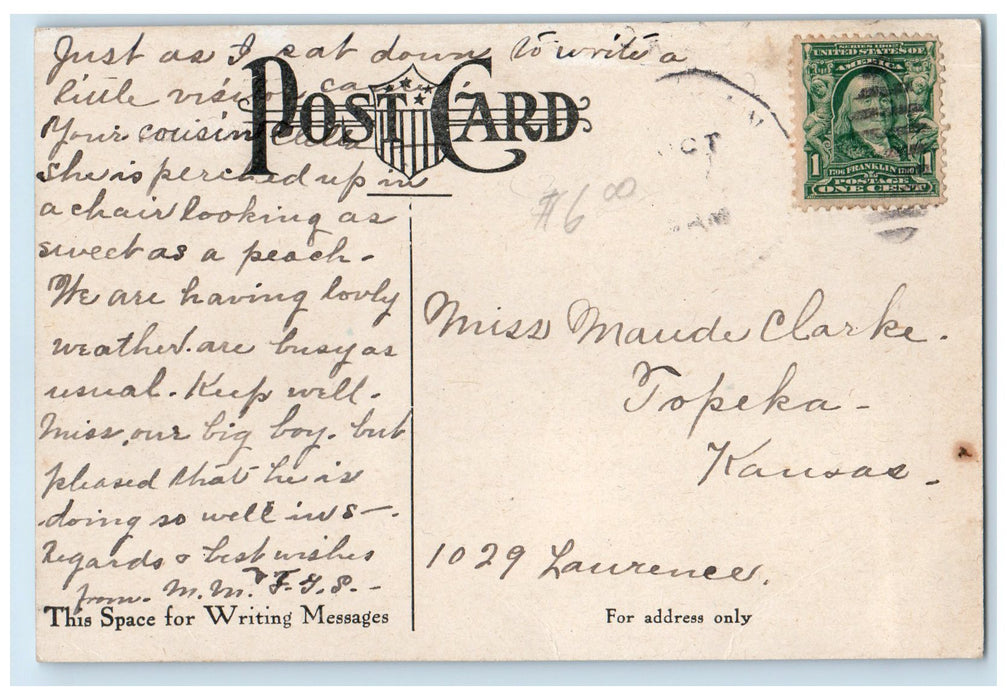 Just as I sat down to write a
little vision ca
Your cousin
she is perched up in
a chair looking as
sweet as a peach.
We are having lovly
weather. are busy as
usual. Keep well.
Miss our big boy. but
pleased that he is
doing so well in
Regards & best wishes
from. M. M. F. G. S.
POST CARD
This Space for Writing Messages
CT
AM
$6.00
SERIES 1902
UNITED STATES OF
AMERICA
1 1706 FRANKLIN 1790 1
POSTAGE
ONE CENT
Miss Maude Clarke.
Topeka -
Kansas.
1029 Laurence.
For address only